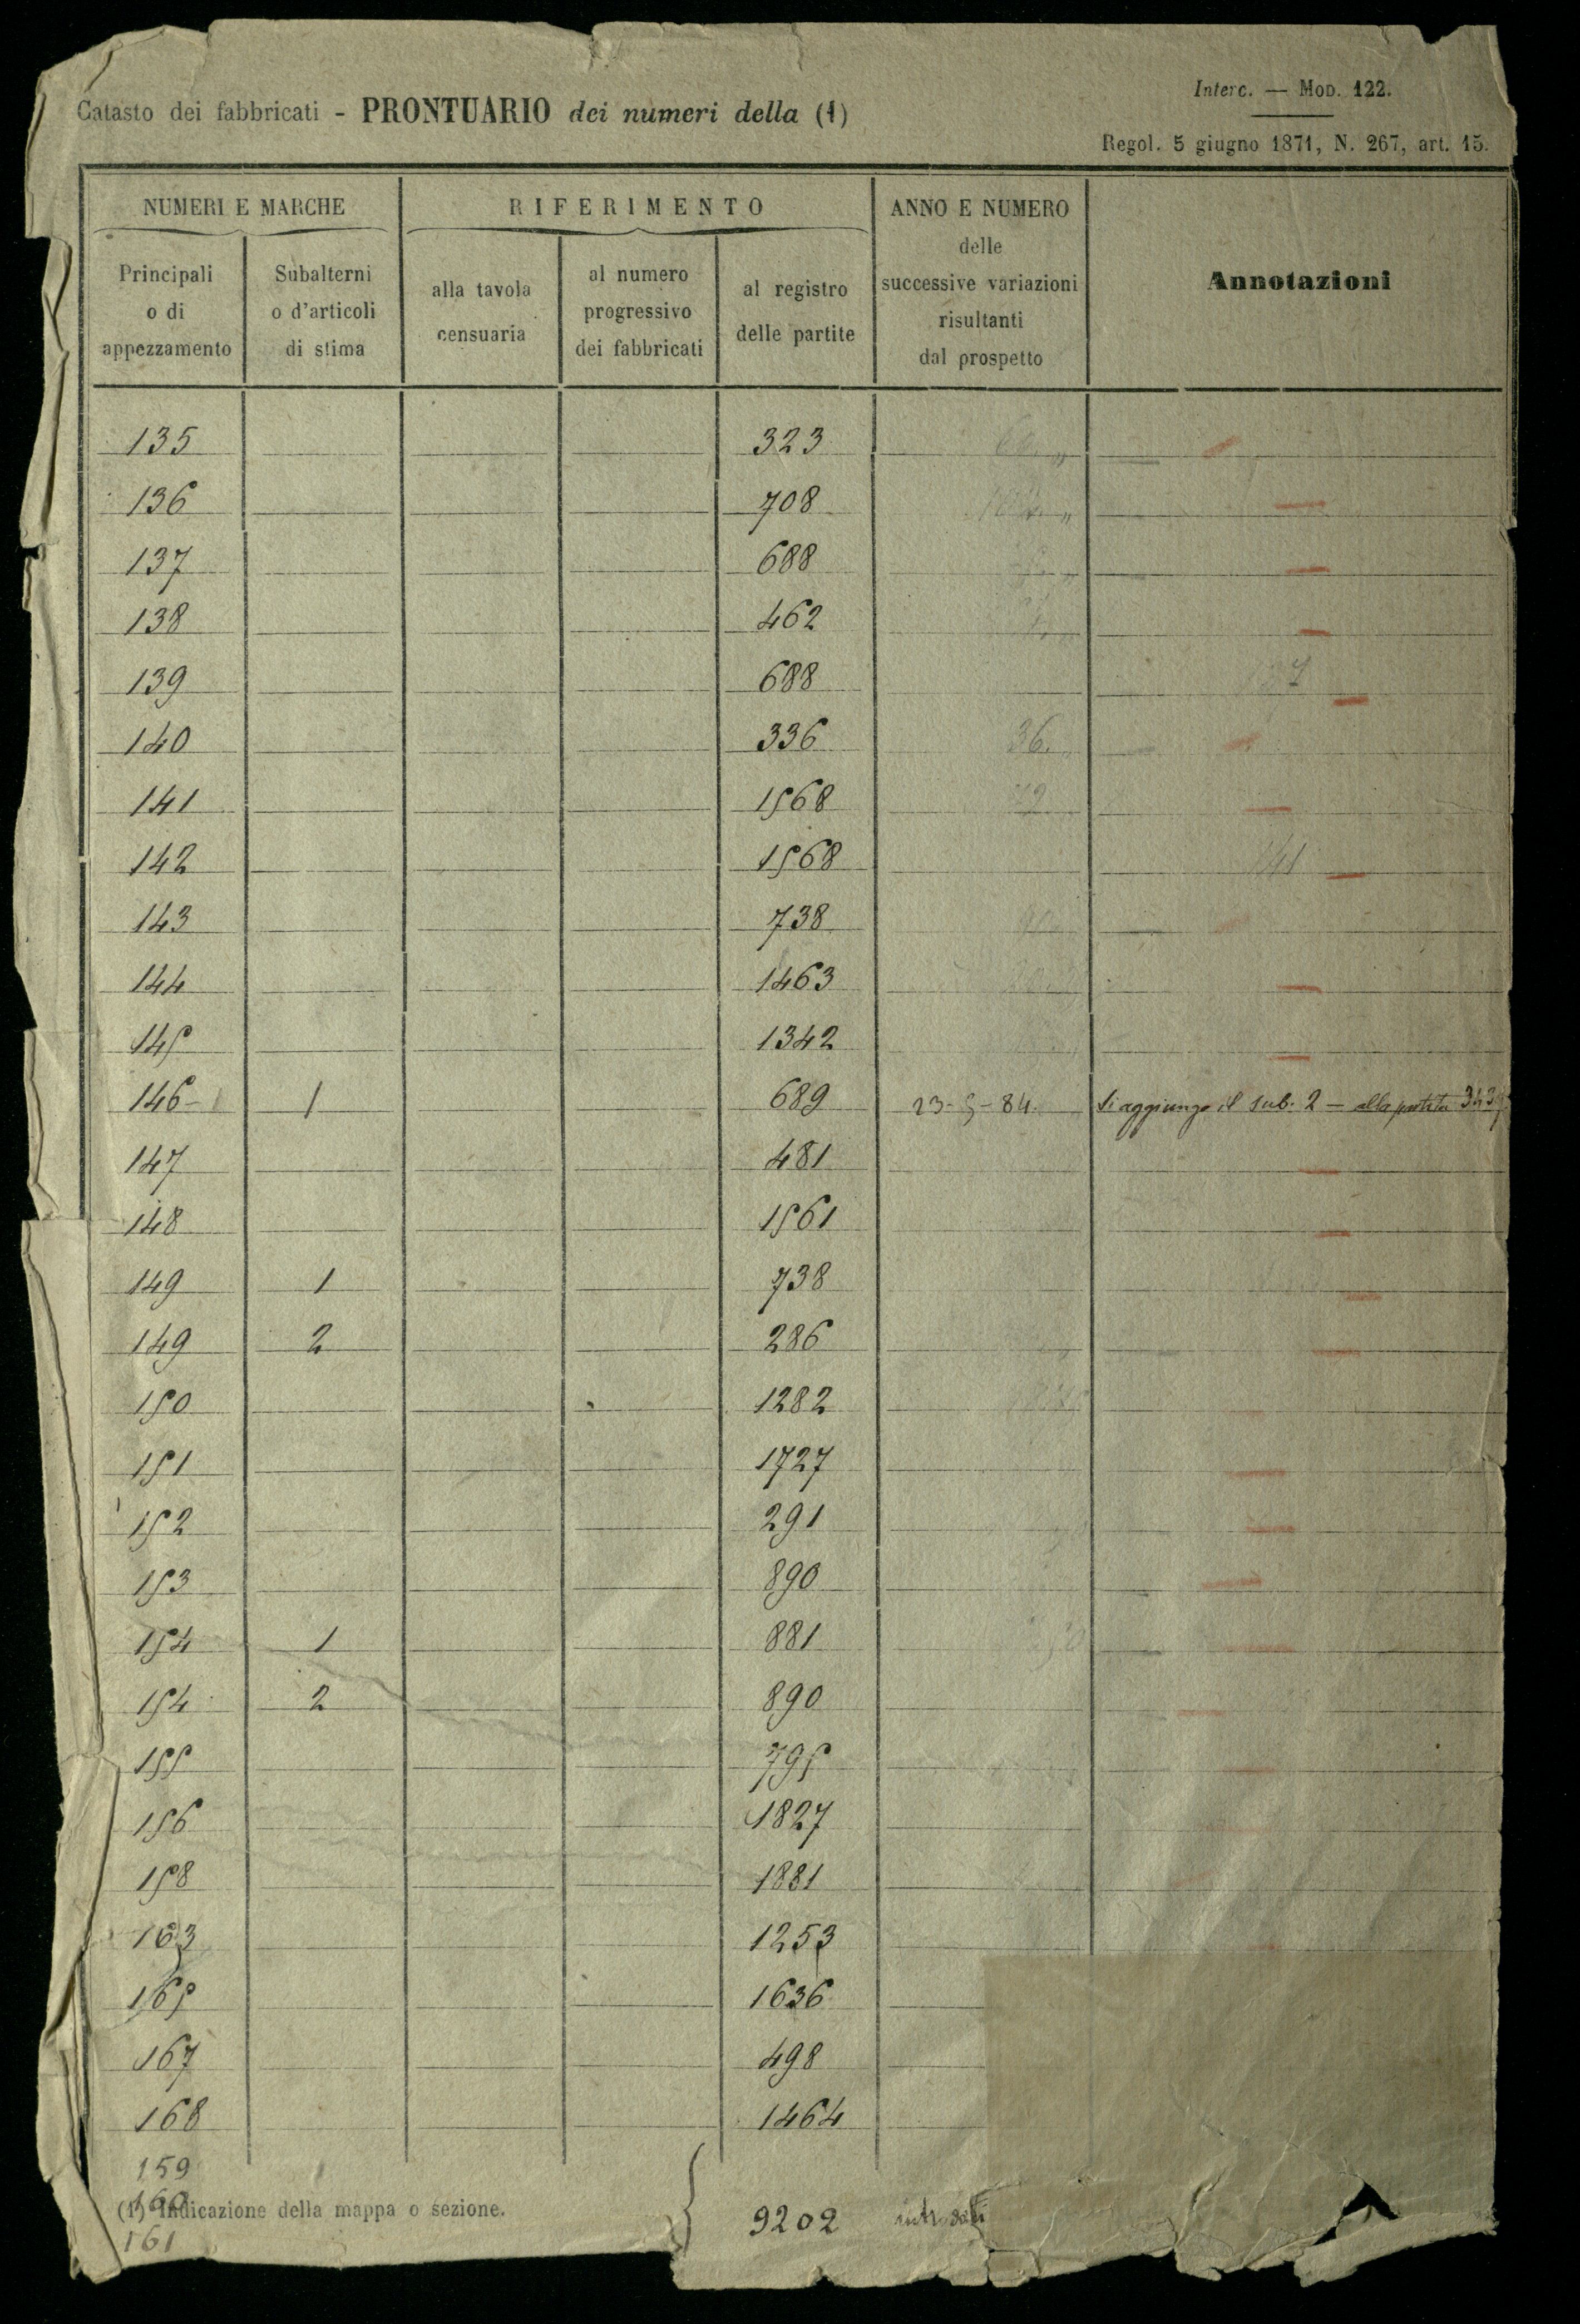 Interc. — Mod. 122.
Catasto dei fabbricati - PRONTUARIO dei numeri della (1)
Regol. 5 giugno 1871, N. 267, art. 15.
NUMERI E MARCHE RIFERIMENTO ANNO E NUMERO delle successive variazioni risultanti dal prospetto Annotazioni
Principali o di appezzamento Subalterni o d'articoli di stima alla tavola censuaria al numero progressivo dei fabbricati al registro delle partite
135 323
136 708
137 688
138 462
139 688
140 336 36.
141 1568
142 1568 141
143 738
144 1463
145 1342
146 1 689 23-5-84. Si aggiunge il sub. 2 — alla partita
147 481
148 1561
149 1 738
149 2 286
150 1282
151 1727
152 291
153 890
154 1 881
154 2 890
155 795
156 1827
158 1881
163 1253
165 1636
167 498
168 1464
159
160
(1) Indicazione della mappa o sezione.
161 9202